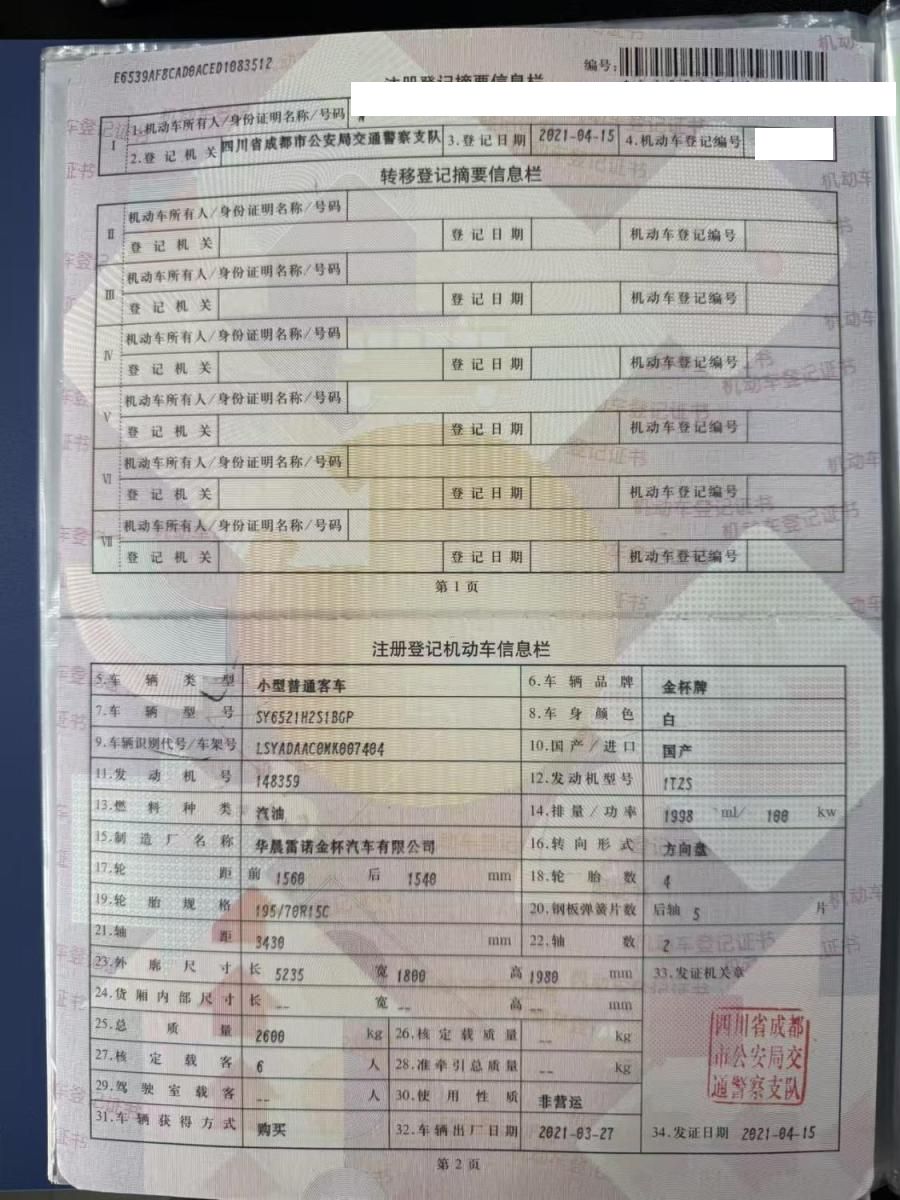 E6539AF8CAD0ACED1083512
编号:
注册登记摘要信息栏
Ⅰ 1.机动车所有人/身份证明名称/号码
2.登记机关 四川省成都市公安局交通警察支队 3.登记日期 2021-04-15 4.机动车登记编号
转移登记摘要信息栏
Ⅱ 机动车所有人/身份证明名称/号码
登记机关 登记日期 机动车登记编号
Ⅲ 机动车所有人/身份证明名称/号码
登记机关 登记日期 机动车登记编号
Ⅳ 机动车所有人/身份证明名称/号码
登记机关 登记日期 机动车登记编号
Ⅴ 机动车所有人/身份证明名称/号码
登记机关 登记日期 机动车登记编号
Ⅵ 机动车所有人/身份证明名称/号码
登记机关 登记日期 机动车登记编号
Ⅶ 机动车所有人/身份证明名称/号码
登记机关 登记日期 机动车登记编号
第1页
注册登记机动车信息栏
5.车辆类型 小型普通客车 6.车辆品牌 金杯牌
7.车辆型号 SY6521H2S1BGP 8.车身颜色 白
9.车辆识别代号/车架号 LSYADAAC0MK007404 10.国产/进口 国产
11.发动机号 148359 12.发动机型号 1TZS
13.燃料种类 汽油 14.排量/功率 1998 ml/ 100 kw
15.制造厂名称 华晨雷诺金杯汽车有限公司 16.转向形式 方向盘
17.轮距 前 1560 后 1540 mm 18.轮胎数 4
19.轮胎规格 195/70R15C 20.钢板弹簧片数 后轴 5 片
21.轴距 3430 mm 22.轴数 2
23.外廓尺寸 长 5235 宽 1800 高 1980 mm 33.发证机关章
24.货厢内部尺寸 长 -- 宽 -- 高 -- mm
25.总质量 2600 kg 26.核定载质量 -- kg
27.核定载客 6 人 28.准牵引总质量 -- kg
29.驾驶室载客 -- 人 30.使用性质 非营运
四川省成都
市公安局交
通警察支队
31.车辆获得方式 购买 32.车辆出厂日期 2021-03-27 34.发证日期 2021-04-15
第2页